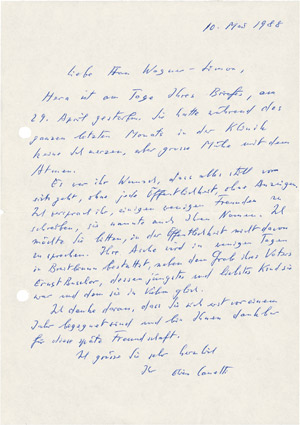 10. Mai 1988
Liebe Frau Wagner-Simon,
Hera ist am Tage Ihres Briefes, am
29. April gestorben. Sie hatte während des
ganzen letzten Monats in der Klinik
keine Schmerzen, aber grosse Mühe mit dem
Atmen.
Es war ihr Wunsch, dass alles still vor
sich geht, ohne jede Öffentlichkeit, ohne Anzeigen.
Ich versprach ihr, einigen wenigen Freunden zu
schreiben, sie nannte auch Ihren Namen. Ich
möchte Sie bitten, in der Öffentlichkeit nicht davon
zu sprechen. Ihre Asche wird in einigen Tagen
in bestattet, neben dem Grab ihres Vaters
Ernst Buschor, dessen jüngstes und liebstes Kind sie
war und dem sie in glich.
Ich denke daran, dass Sie sich erst vor einem
Jahr begegnet sind und bin Ihnen dankbar
für diese späte Freundschaft.
Ich grüsse Sie sehr herzlich
Ihr Elias Canetti